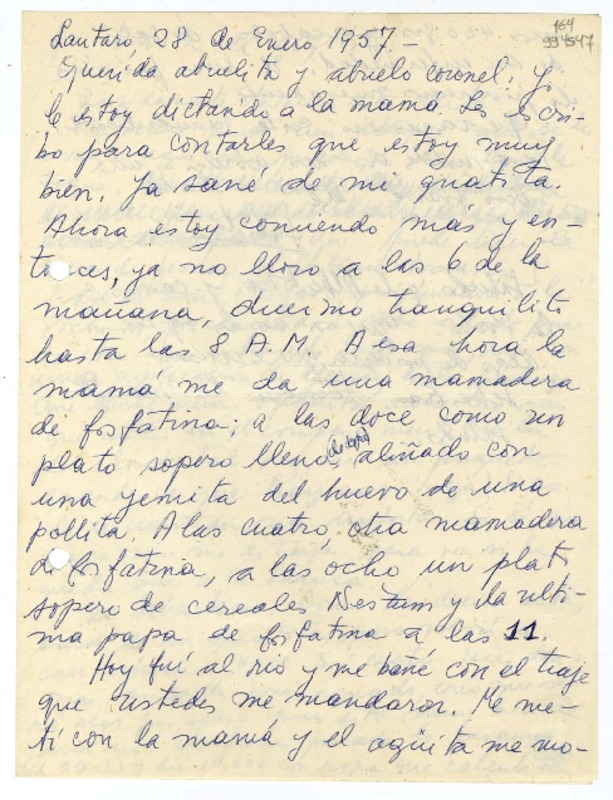 164
994547
Lautaro, 28 de Enero 1957_
Querida abuelita y abuelo coronel: Yo
le estoy dictando a la mamá. Les escri-
bo para contarles que estoy muy
bien. Ya sané de mi guatita.
Ahora estoy comiendo más y en-
tonces, ya no lloro a las 6 de la
mañana, duermo tranquilito
hasta las 8 A.M. A esa hora la
mamá me da una mamadera
de fosfatina; a las doce como un
plato sopero lleno, aliñado con
una yemita del huevo de una
pollita. A las cuatro, otra mamadera
de fosfatina, a las ocho un plato
sopero de cereales Nestum y la ulti-
ma papa de fosfatina a las 11.
Hoy fuí al rio y me bañé con el traje
que ustedes me mandaron. Me me-
tí con la mamá y el agüita me mo-